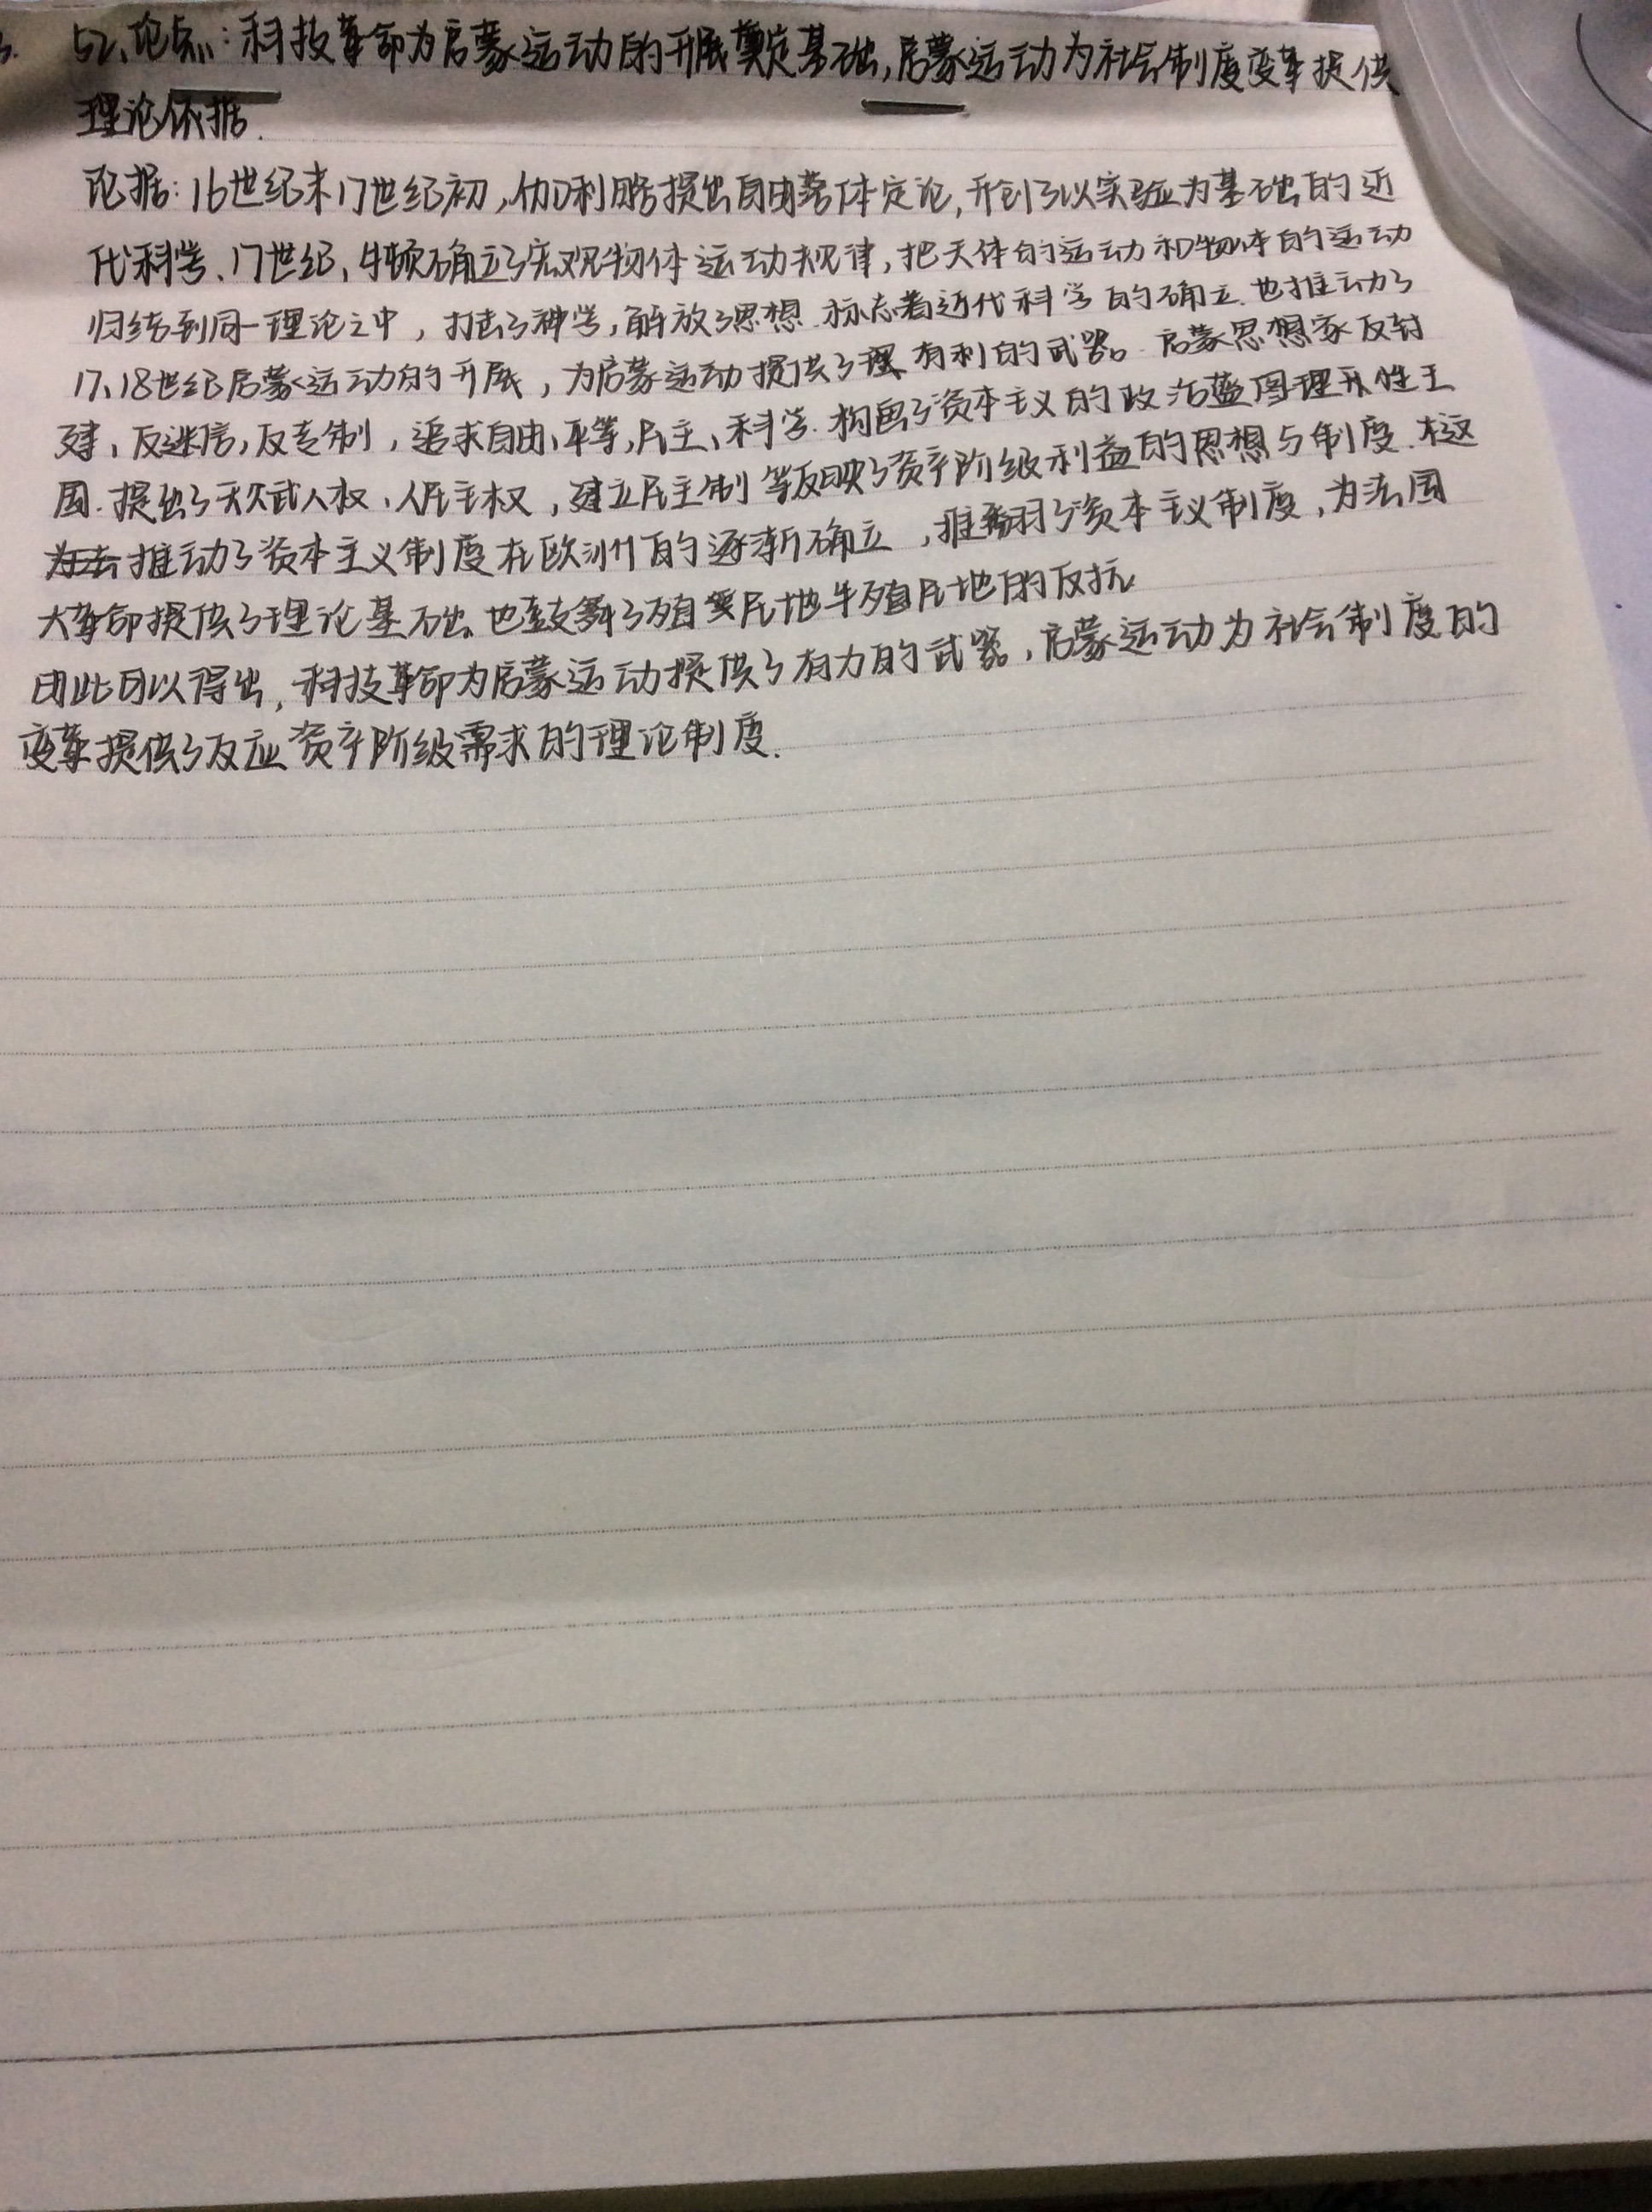 52、论点：科技革命为启蒙运动的开展奠定基础，启蒙运动为社会制度变革提供
理论依据.
论据：16世纪末17世纪初，伽利略提出自由落体定论，开创了以实验为基础的近
代科学、17世纪，牛顿确立了宏观物体运动规律，把天体的运动和物体的运动
归结到同一理论之中，打击了神学，解放了思想.标志着近代科学的确立.也推动了
17、18世纪启蒙运动的开展，为启蒙运动提供了有利的武器。启蒙思想家反封
建、反迷信，反专制，追求自由、平等，民主、科学.构画了资本主义的政治蓝图理性王
国.提出了天赋人权、人民主权，建立民主制等反映了资产阶级利益的思想与制度.
推动了资本主义制度在欧洲的逐渐确立，推翻了资本主义制度，为法国
大革命提供了理论基础、也鼓舞了殖民地半殖民地的反抗
由此可以得出，科技革命为启蒙运动提供了有力的武器，启蒙运动为社会制度的
变革提供了反应资产阶级需求的理论制度.